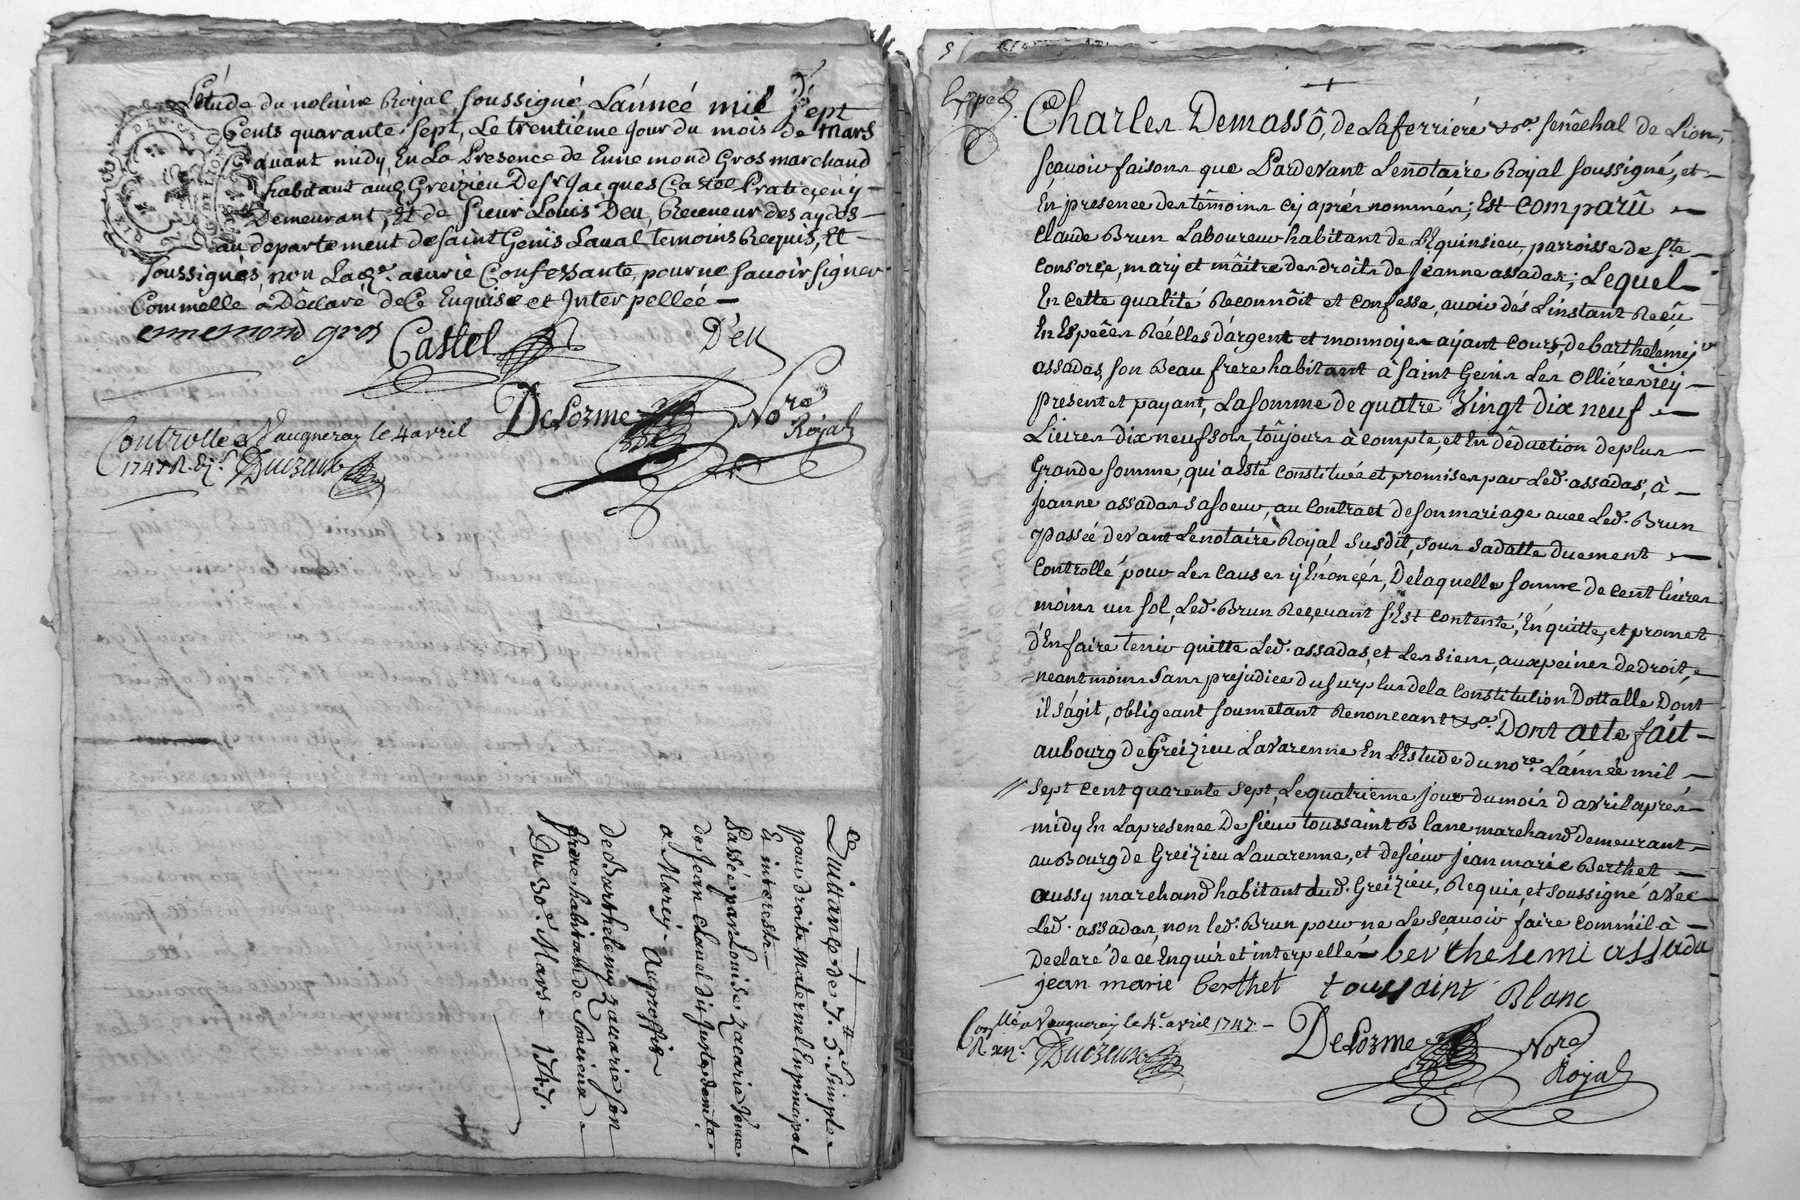 L'étude du notaire Royal soussigné, L'année mil sept
Cents quarante sept, Le trentième jour du mois de Mars
avant midy En La Presence de Ennemond Gros marchand
habitant aud. Greizieu De sr. Jacques Castel Praticien y
Demeurant, Et de sieur Louis Deu, Receveur des aydes
au departement de saint Genis Laval temoins Requis, Et
soussignés, non Lad. zacarie Confessante, pour ne savoir signer
Comme elle a Déclaré de Ce Enquise et Interpellée
ennemond gros
Castel
D'eu
DeLorme Nore. Royal
Controllé a Vaugneray le 4 avril
1747 R. Duizeux
+
Quittance de 7.tt 5.s simple
pour droits Maternel En principal
Et interests
Passée par Louise zacarie veuve
de Jean Clavel dit Juste
a Marcy. Au proffit
de Barthelemy zacarie son
frere habitant de Soucieux
Du 30.e Mars 1747.
+
Exped.
Charles Demassô, de Laferriere &a. senêchal de Lion,
sçavoir faisons que Pardevant Le notaire Royal soussigné, et
En presence des têmoins cy aprés nommés; Est comparû
Claude Brun Laboureur habitant de L'Equinsieu, parroisse de ste.
Consorce, mary et mâitre des droits de Jeanne assadas; Lequel
En cette qualité Reconnôit et confesse, avoir dés L'instant Reçû
En Espêces Réelles d'argent et monnoyes ayant cours, de barthelemy
assadas, son Beau frere habitant à saint Genis Les Olliéres icy
present et payant, La somme de quatre Vingt dix neuf
Livres dix neuf sols, toûjours à compte, et En dêduction de plus
Grande somme, qui a Esté constituée et promise par Led. assadas, à
Jeanne assadas sa soeur, au contract de son mariage avec Led. Brun
Passée devant Le notaire Royal susdit, sous sa datte duement
Controllé pour Les causes y Enoncées, De laquelle somme de cent livres
moins un sol, Led. Brun Reçevant s'Est contenté, En quitte, et promet
d'En faire tenir quitte Led. assadas, et Les siens, aux peines de droit,
neantmoins sans prejudice du surplus de la constitution Dottalle Dont
il s'agit, obligeant soumetant Renonceant &a. Dont acte fait
au bourg de Greizieu Lavarenne En L'Estude du nore. L'année mil
sept cent quarente sept, Le quatrieme jour du mois d'avril aprés
midy En La presence De sieur toussaint Blanc marchand demeurant
au Bourg de Greizieu Lavarenne, et de sieur jean marie Berthet
aussy marchand habitant aud. Greizieu, Requis, et soussigné avec
Led. assadas, non led. Brun pour ne Le sçavoir faire comm'il à
Declaré de ce Enquis et interpellés berthelemi assada
jean marie berthet toussaint Blanc
Conllé a Vaugneray le 4e. avril 1747.
Duizeux
DeLorme Nore. Royal